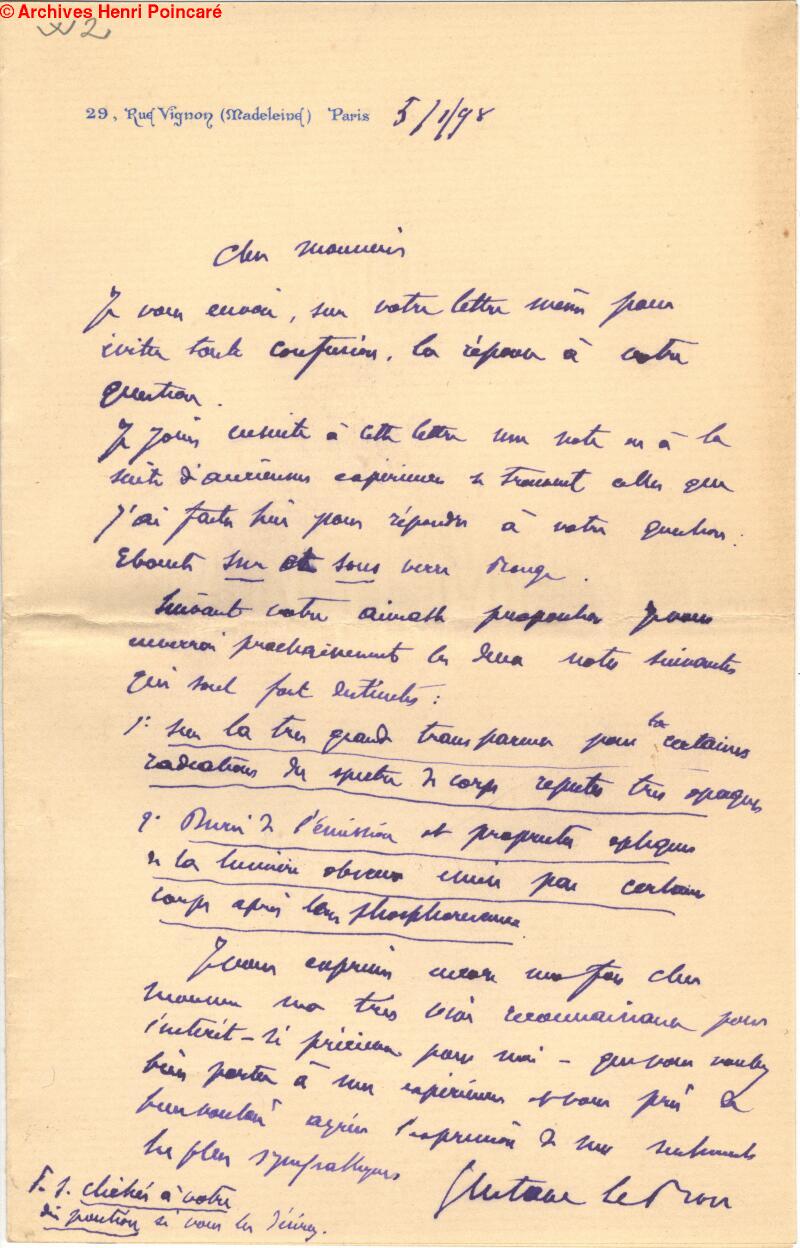 © Archives Henri Poincaré
29, Rue Vignon (Madeleine) Paris 5/1/98
Cher monsieur
Je vous envoie, sur votre lettre même pour
éviter toute confusion, la réponse à votre
question.
Je joins ensuite à cette lettre une note où à la
suite d'anciennes expériences se trouvent celles que
j'ai faites hier pour répondre à votre question :
Ebonite sur et sous verre rouge.
Suivant votre aimable proposition je vous
enverrai prochainement les deux notes suivantes
qui sont fort distinctes :
1° sur la très grande transparence pour certaines
radiations du spectre de corps réputés très opaques
2° Durée de l'émission et propriétés optiques
de la lumière obscure émise par certains
corps après leur phosphorescence.
Je vous exprime encore une fois cher
monsieur ma très vive reconnaissance pour
l'intérêt – si précieux pour moi – que vous voulez
bien porter à mes expériences et vous prie de
bien vouloir agréer l'expression de mes sentiments
les plus sympathiques
Gustave Le Bon
P.S. clichés à votre
disposition si vous les désirez.